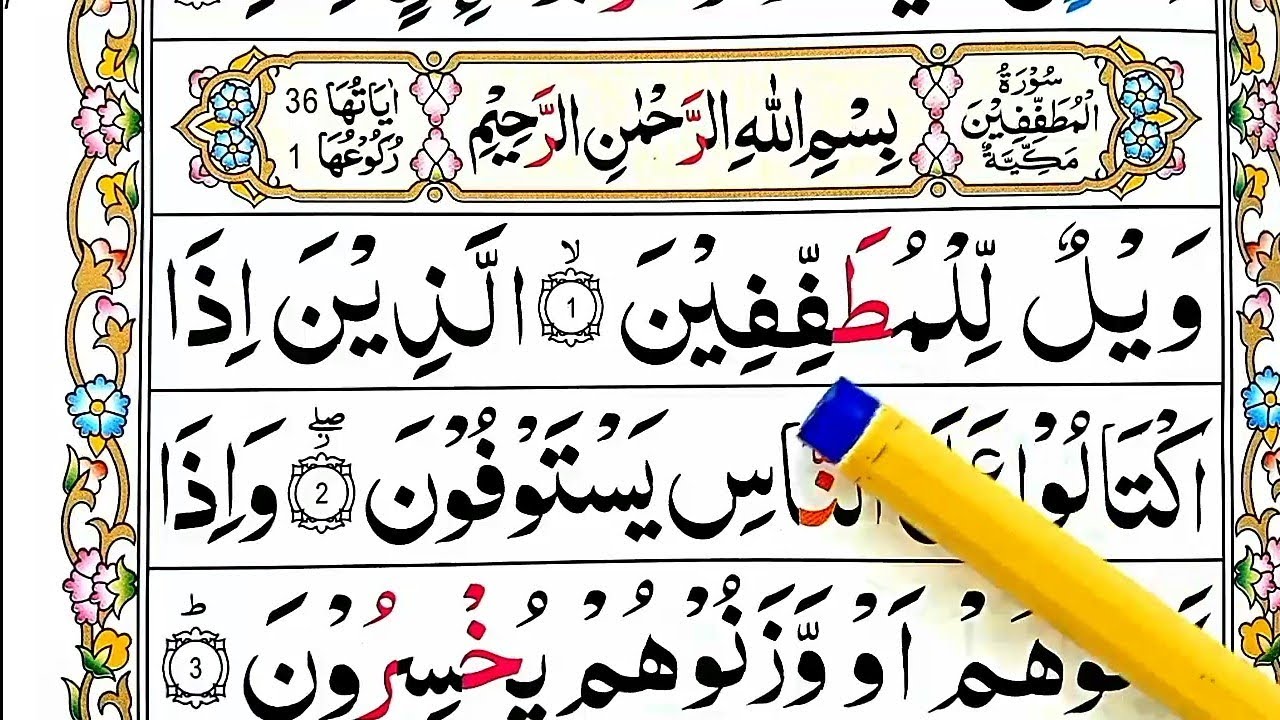 سُوْرَةُ الْمُطَفِّفِيْنَ مَكِّيَّةٌ
بِسْمِ اللّٰهِ الرَّحْمٰنِ الرَّحِيْمِ
اٰيَاتُهَا 36
رُكُوْعُهَا 1
وَيْلٌ لِّلْمُطَفِّفِيْنَ ۙ 1 الَّذِيْنَ اِذَا
اكْتَالُوْا عَلَى النَّاسِ يَسْتَوْفُوْنَ ۖ 2 وَاِذَا
اَوْ وَّزَنُوْهُمْ يُخْسِرُوْنَ ؕ 3